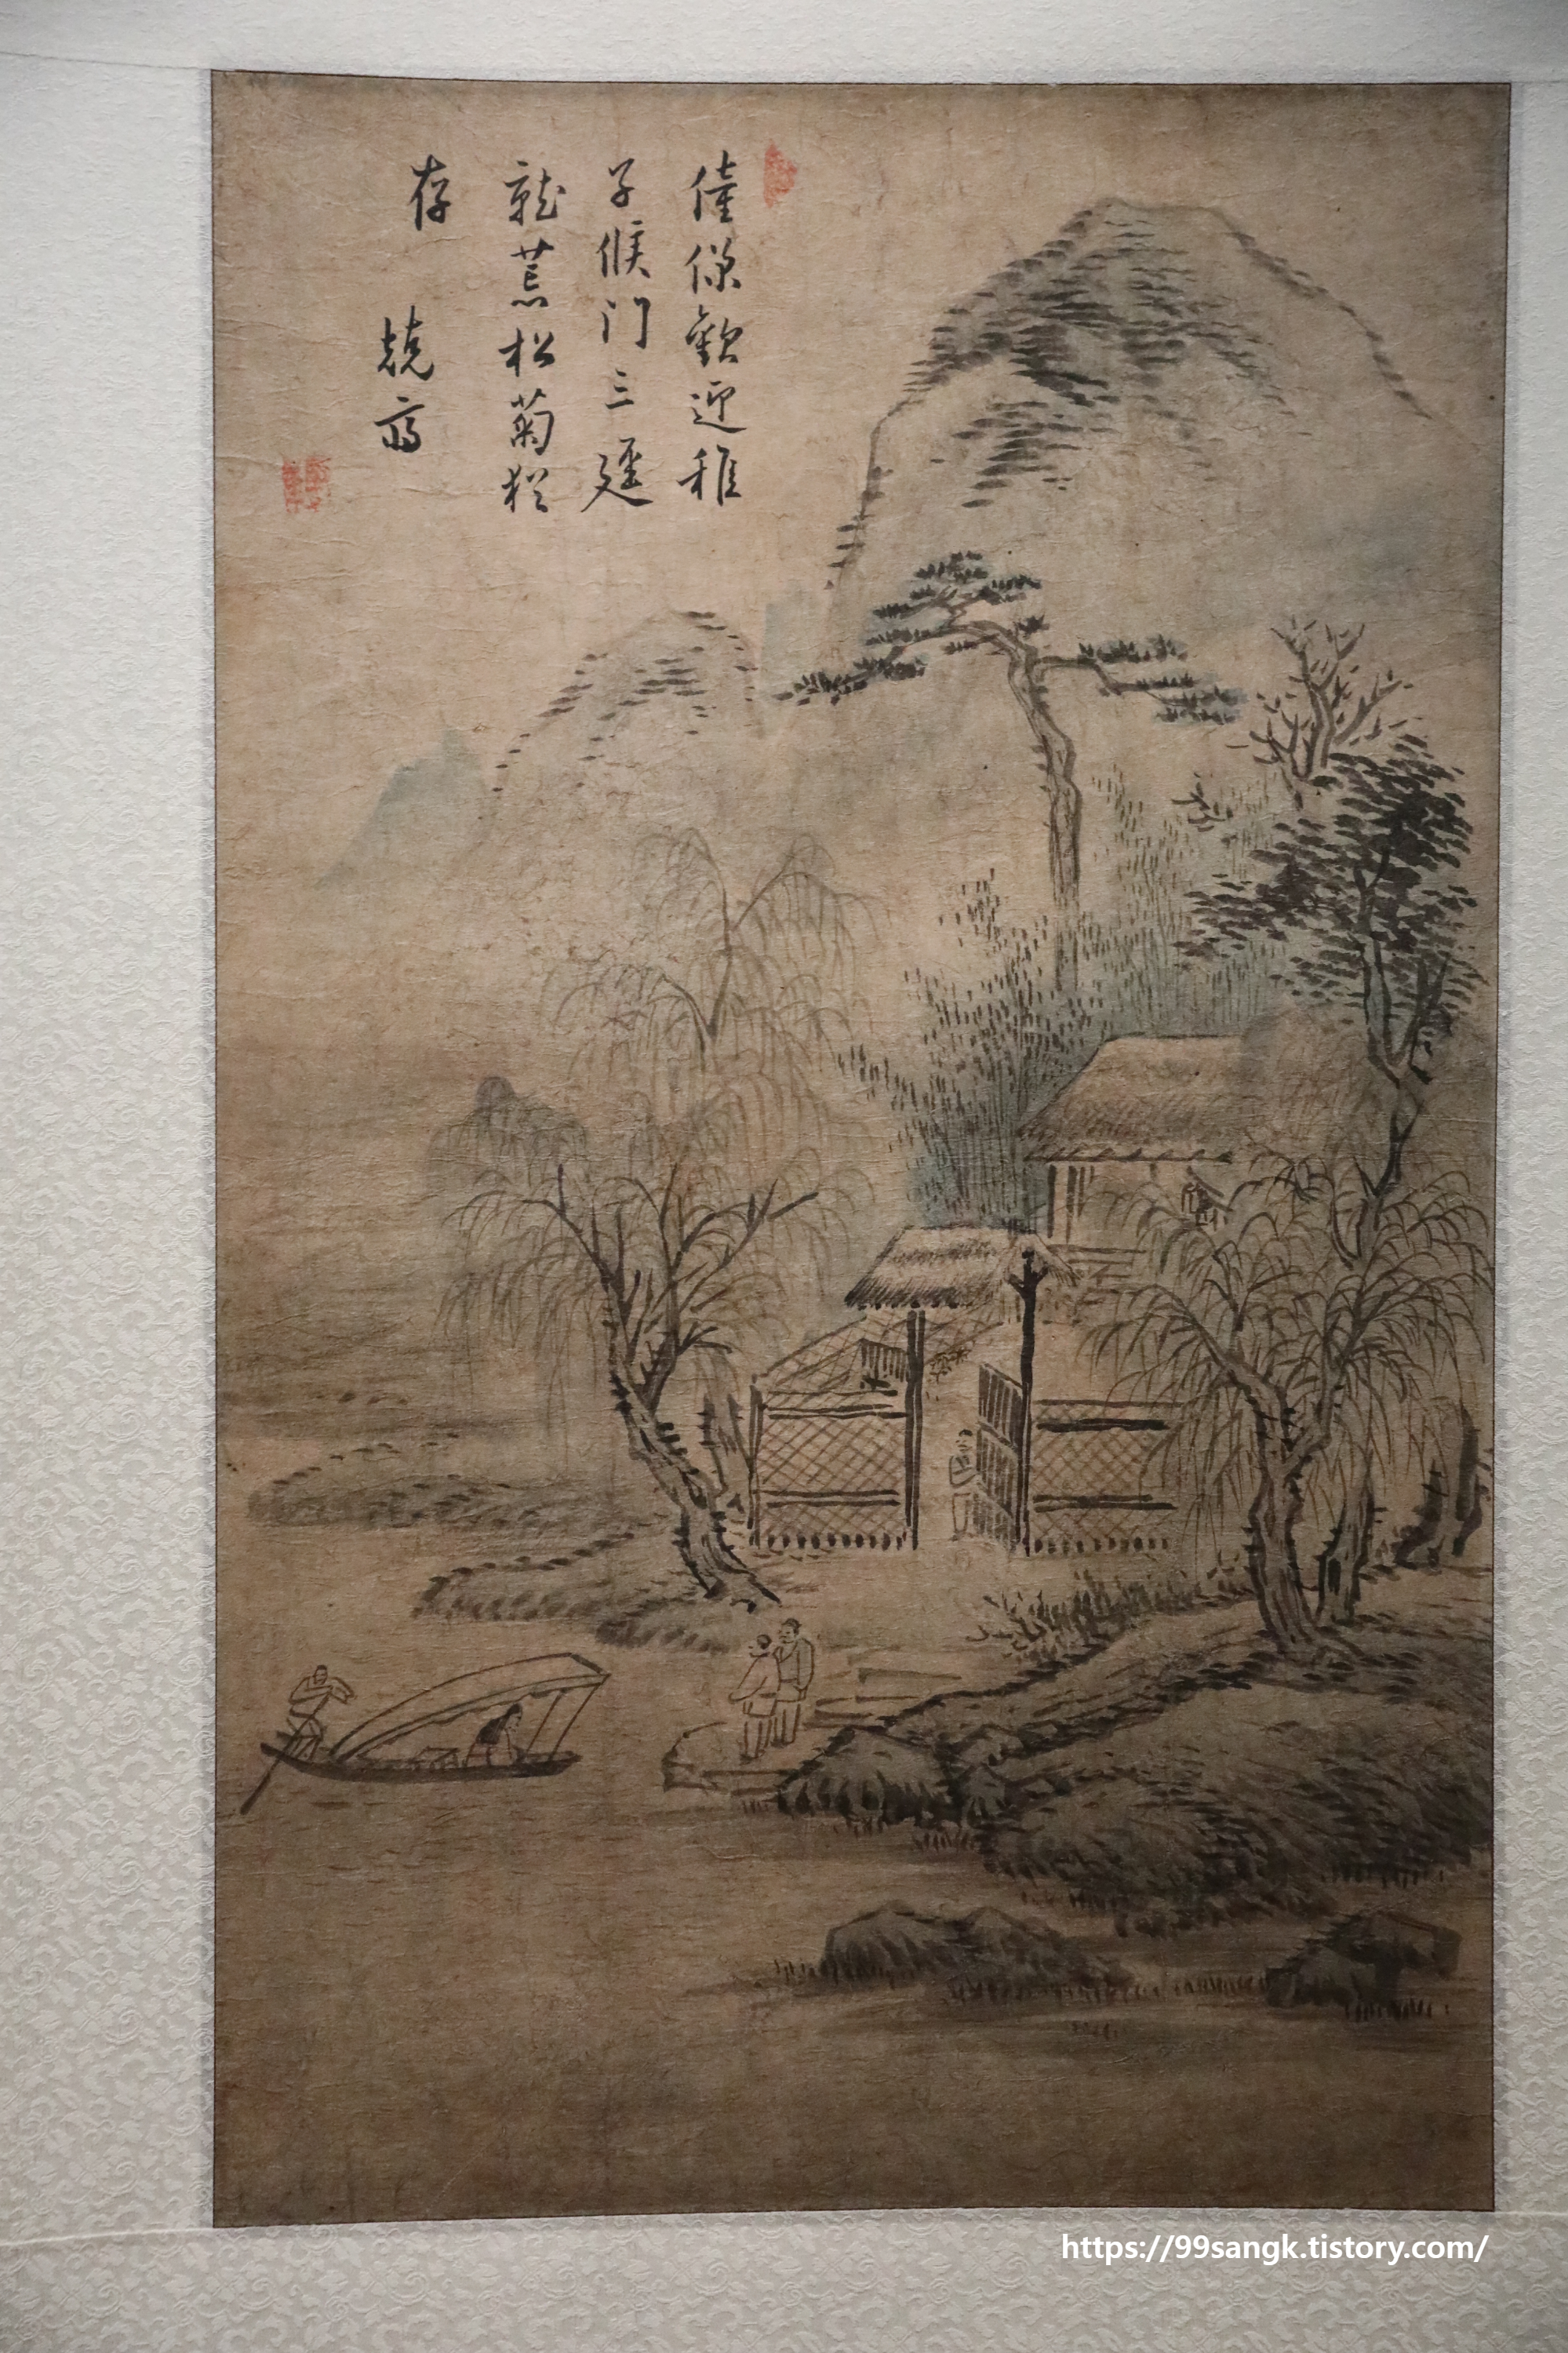 僮僕歡迎稚
子候門三逕
就荒松菊猶
存
兢齋
https://99sangk.tistory.com/